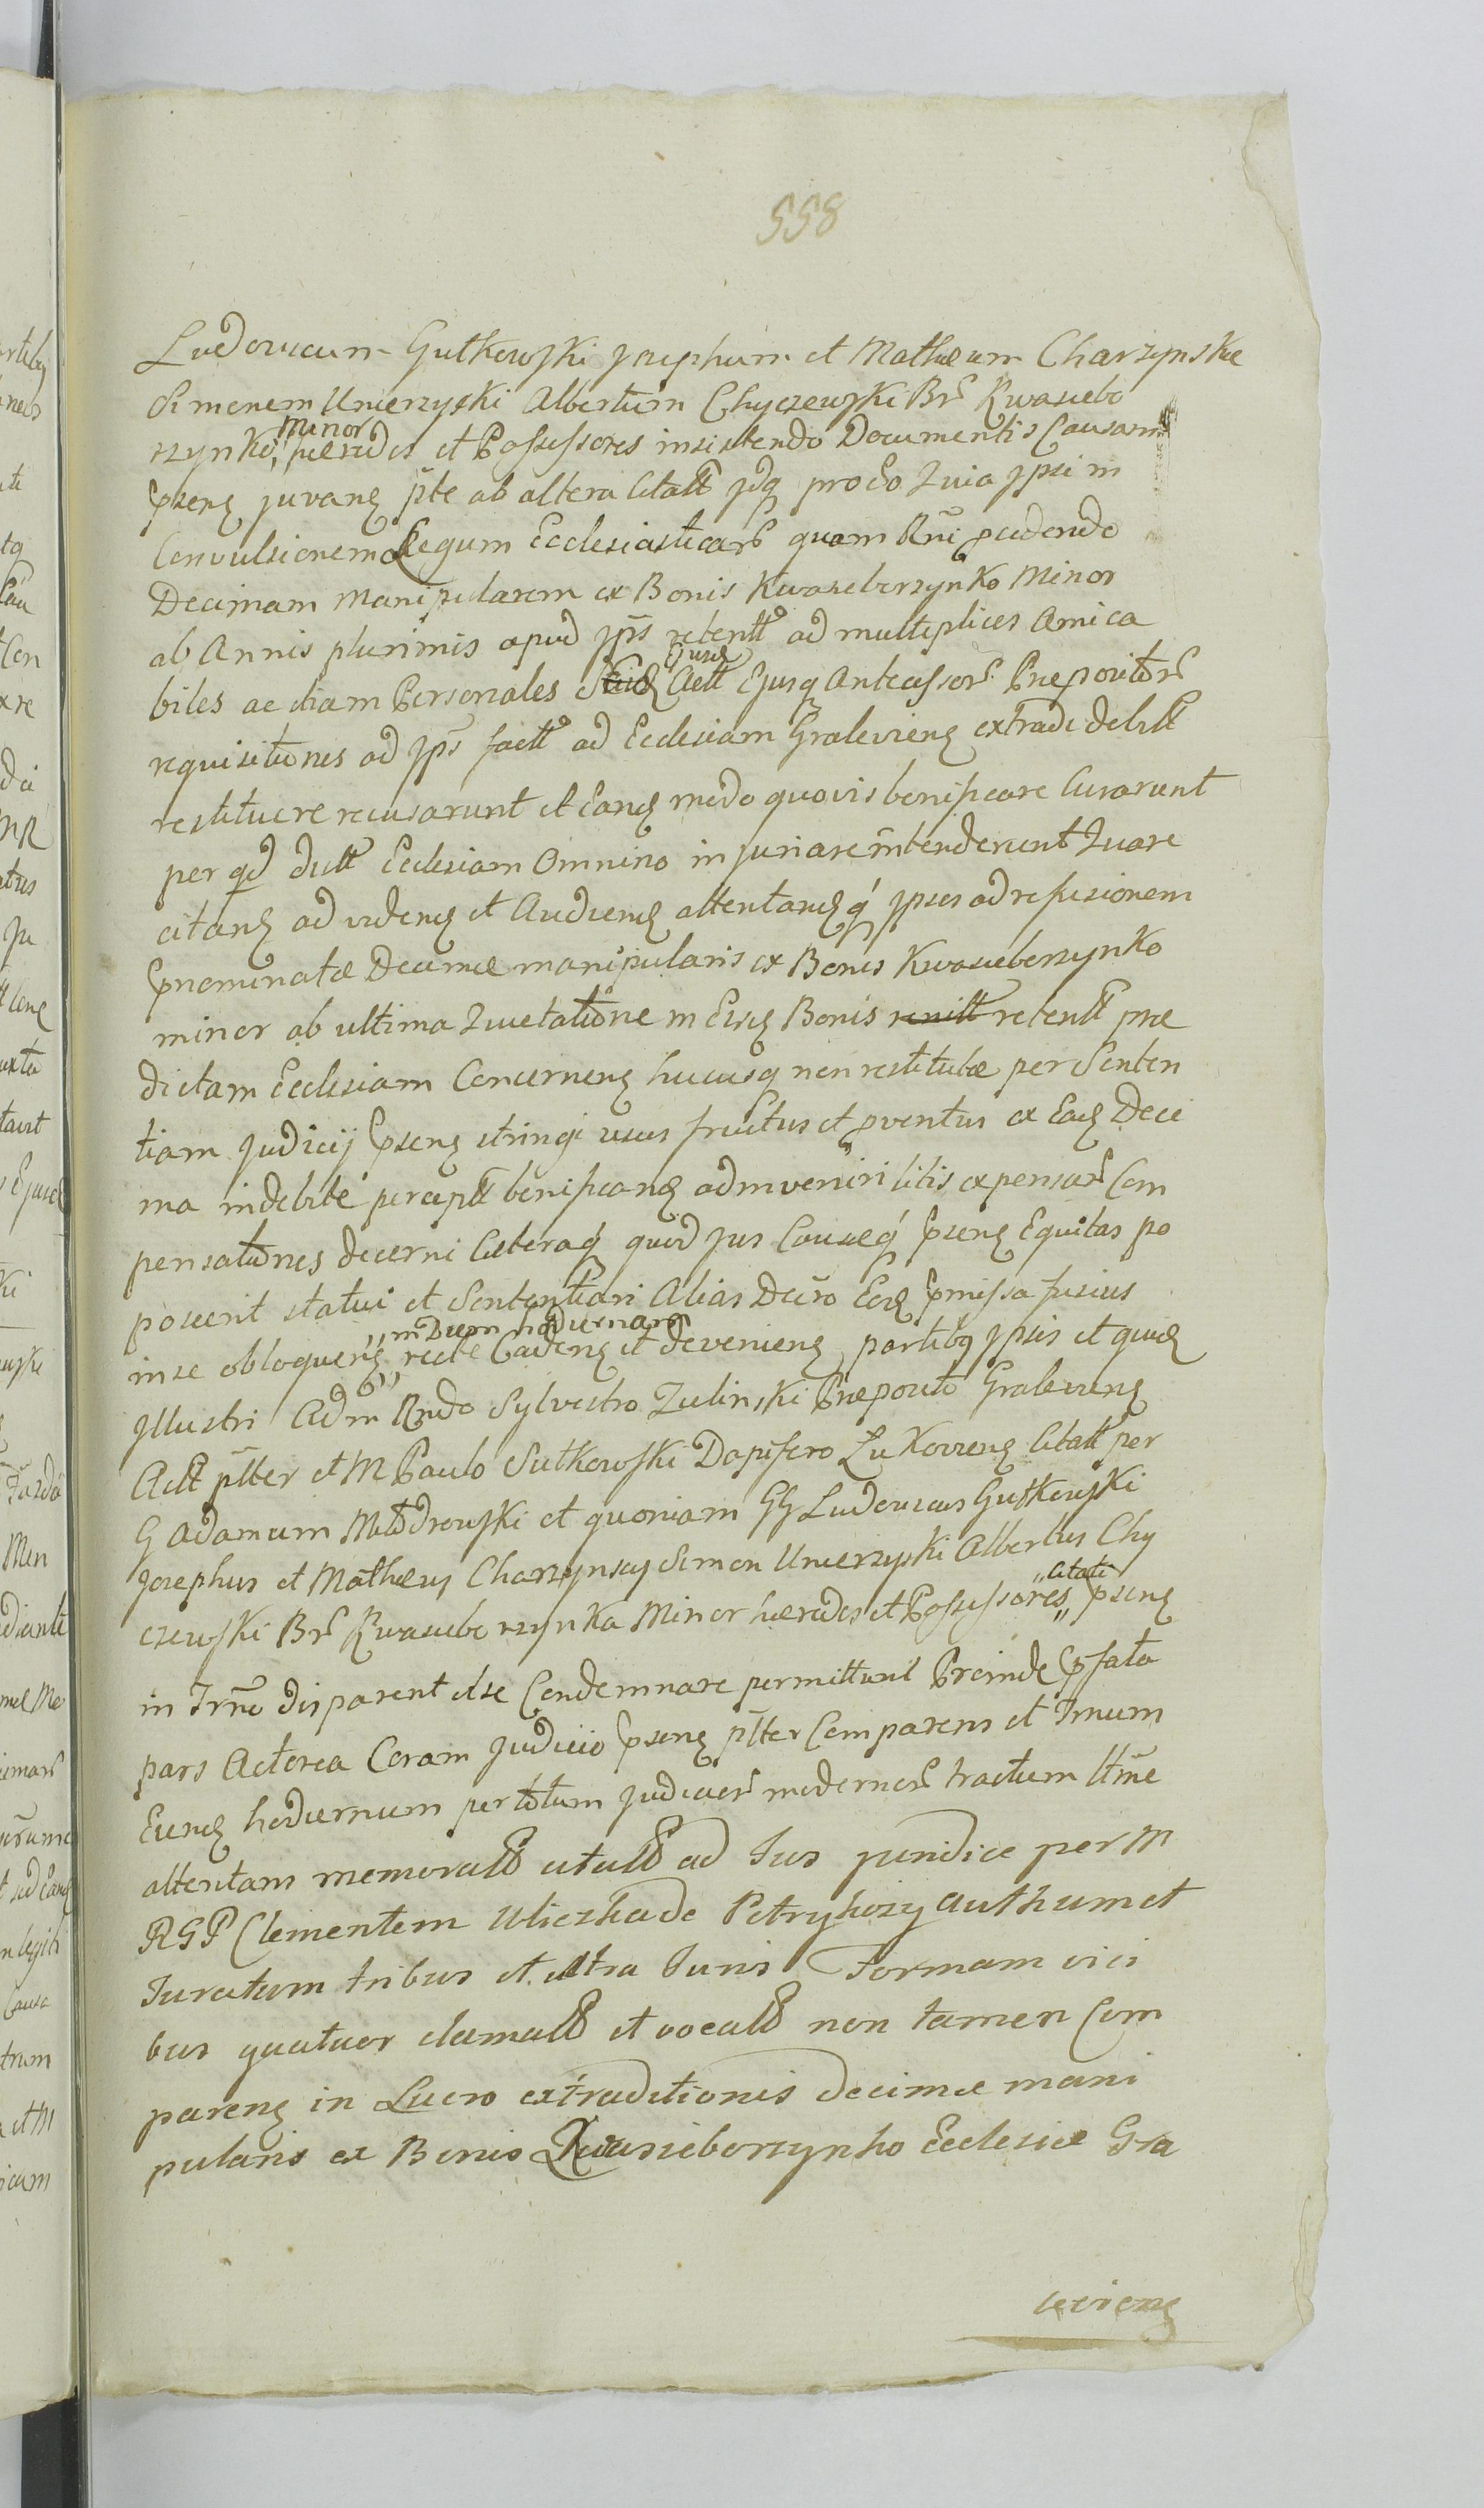 558
Ludovicum Gutkowski Josephum et Mathæum Charzynskie
Simonem Unierzyski Albertum Chyczewski Br Kwasiebo
rzynko Minor hæredes et Possessores insistendo Documentis Causam
pseng juvang pte ab altera Citatt jdq
Convulsionem Legum Ecclesiasticar quam
Decimam Manipularem ex Bonis Kwasieborzynko Minor
ab Annis plurimis apud jps retentt ad multiplices Amica
biles ac etiam Personales Ejusd Actt Ejusq Antecessor Præpositor
requisitiones ad jps factt ad Ecclesiam Gralevieng extradi debitt
restituere recusarunt et Eand modo quovis bonificare Curarunt
per qd dictt Ecclesiam Omnino injuriare intenderunt Quare
citang ad videng et Audieng attentandq ipsos ad refusionem
pnominatæ Decimæ manipularis ex Bonis Kwasieborzynko
minor ab ultima in Eisd Bonis retentt præ
dictam Ecclesiam Concerneng hucusq non restitutæ per Senten
tiam Judicij pseng stringi usus fructus et pventus ex Ead Deci
ma indebite perceptt bonificand adinveniri litis expensar Com
pensationes decerni Cæteraq quod jus Causæq pseng Equitas po
poscerit statui et Sententiari Alias Decro Eod pmissa fusius
in se obloqueng in Diem hodiernam recte Cadeng et devenieng partibq ipsis et quid
Illustri Adm Rndo Sylvestro Zulinski Præposito Gralevieng
Actt pltter et M Paulo Sutkowski Dapifero Zukovieng Citatt per
G Adamum Modrowski et quoniam GG Ludovicus Gutkowski
Josephus et Mathæus Charzynscy Simon Unierzyski Albertus Chy
czewski Br Kwasieborzynka Minor hæredes et Possessores Citati pseng
in Trno disparent et se Condemnare permittunt Proinde pfata
pars Actorea Coram Judicio pseng pltter Comparens et Trnum
Eund hodiernum per totum Judicior modernor tractum ltme
attentans memoratt citatt ad Jus juridice per M
RGP Clementem de Petrykozy Authum et
Juratum tribus et ultra Juris Formam vici
bus quatuor clamatt et vocatt non tamen Com
pareng in Lucro extraditionis decimæ mani
pularis ex Bonis Kwasieborzynko Ecclesiæ Gra
levieng